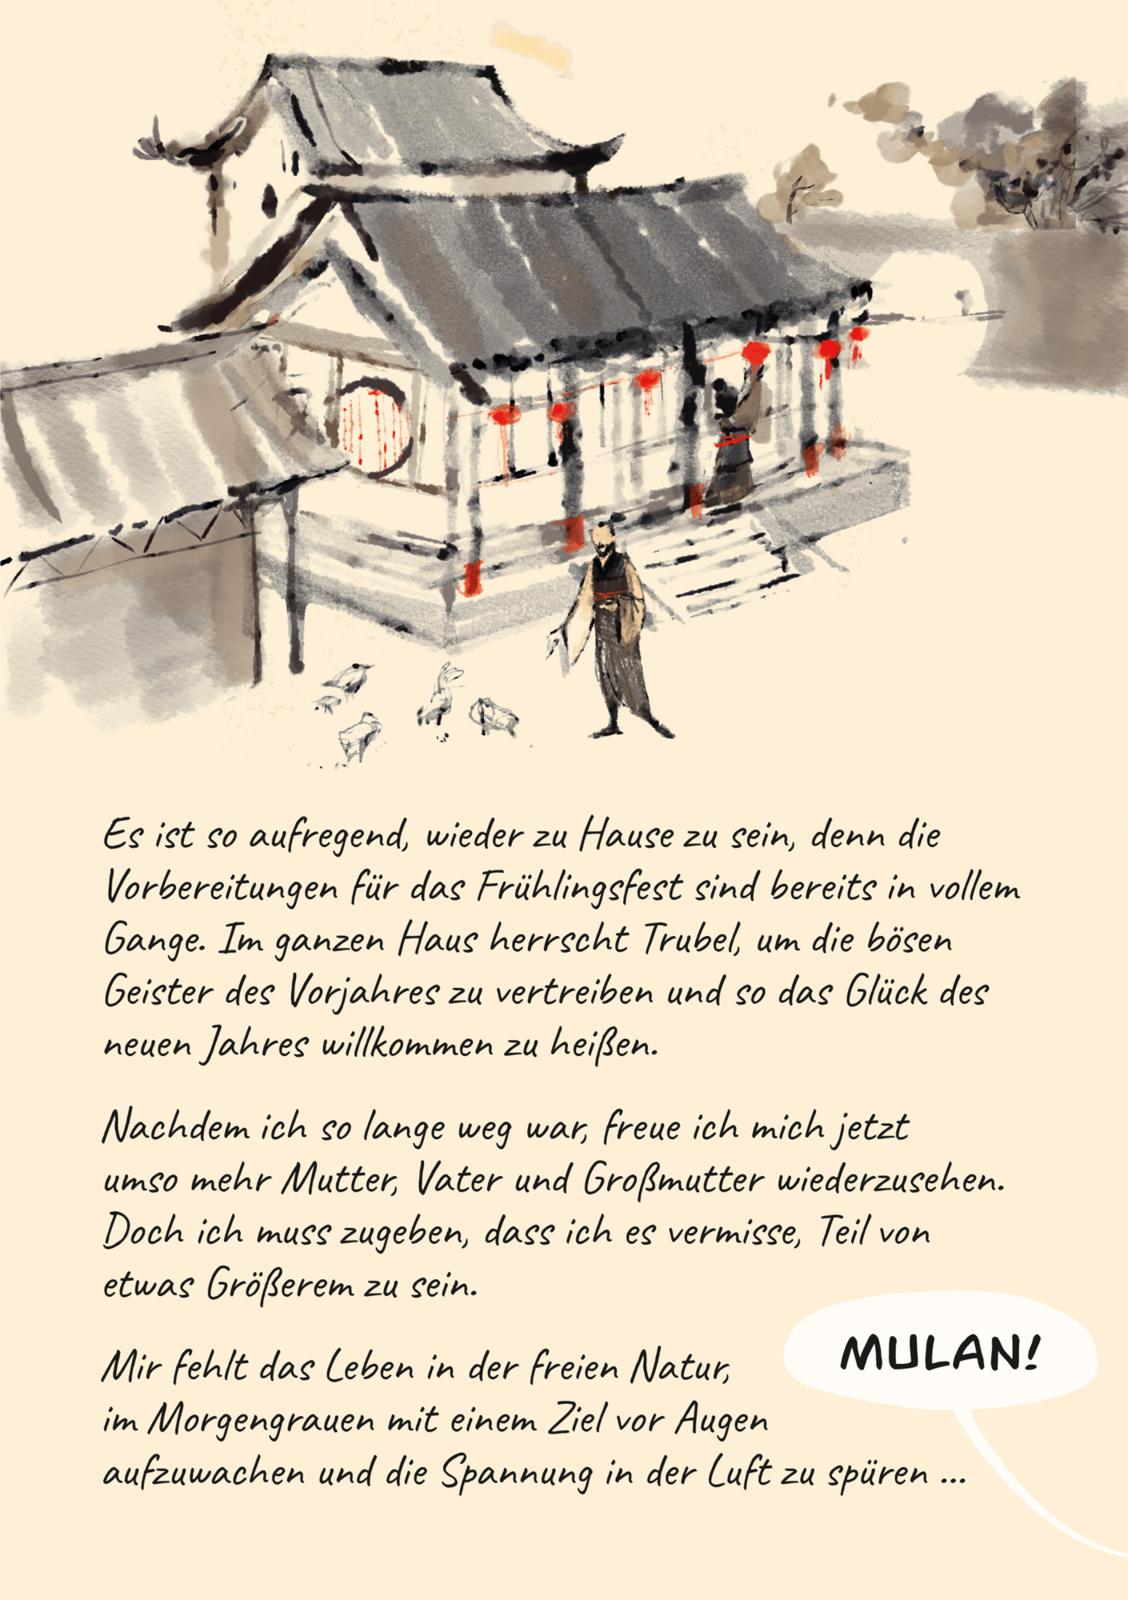 Es ist so aufregend, wieder zu Hause zu sein, denn die
Vorbereitungen für das Frühlingsfest sind bereits in vollem
Gange. Im ganzen Haus herrscht Trubel, um die bösen
Geister des Vorjahres zu vertreiben und so das Glück des
neuen Jahres willkommen zu heißen.
Nachdem ich so lange weg war, freue ich mich jetzt
umso mehr Mutter, Vater und Großmutter wiederzusehen.
Doch ich muss zugeben, dass ich es vermisse, Teil von
etwas Größerem zu sein.
Mir fehlt das Leben in der freien Natur,
im Morgengrauen mit einem Ziel vor Augen
aufzuwachen und die Spannung in der Luft zu spüren ...
MULAN!